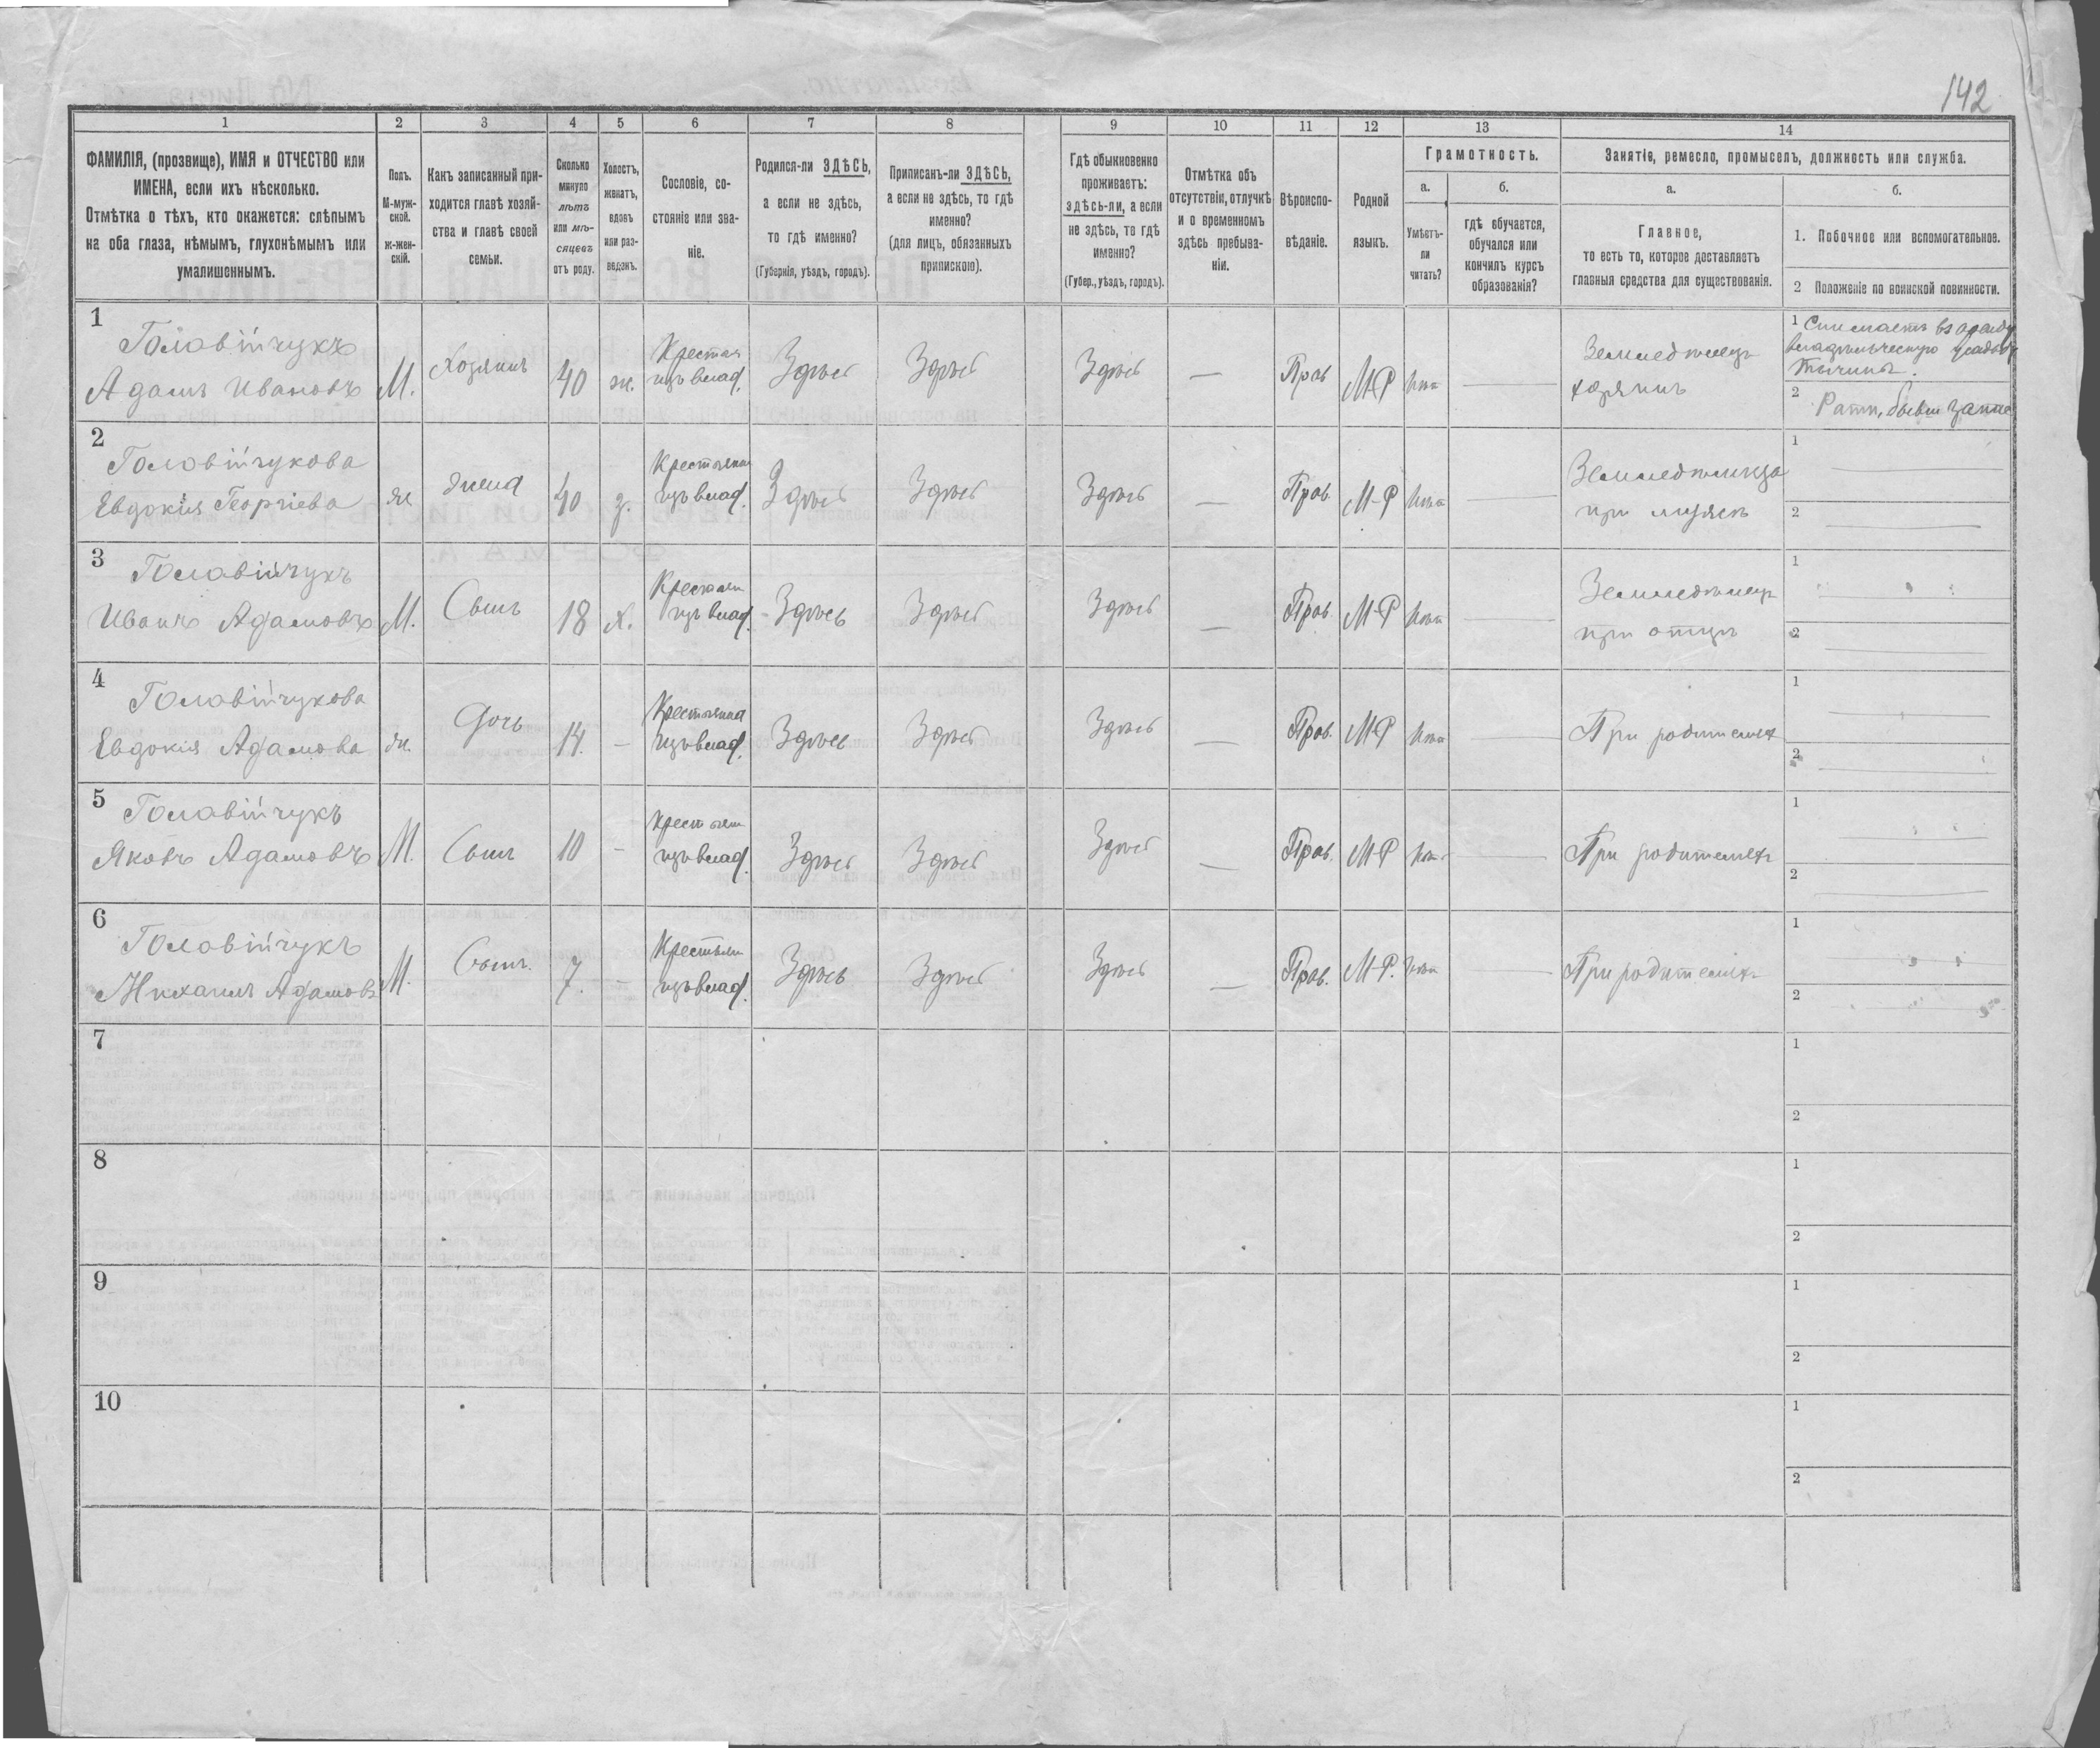 142
1 2 3 4 5 6 7 8 9 10 11 12 13 14
ФАМИЛІЯ, (прозвище), ИМЯ и ОТЧЕСТВО или
ИМЕНА, если ихъ нѣсколько.
Отмѣтка о тѣхъ, кто окажется: слѣпымъ
на оба глаза, нѣмымъ, глухонѣмымъ или
умалишеннымъ.
Полъ.
М-муж-
ской.
ж-жен-
скій.
Какъ записанный при-
ходится главѣ хозяй-
ства и главѣ своей
семьи.
Сколько
минуло
лѣтъ
или мѣ-
сяцевъ
отъ роду.
Холостъ,
женатъ,
вдовъ
или раз-
веденъ.
Сословіе, со-
стояніе или зва-
ніе.
Родился-ли ЗДѢСЬ,
а если не здѣсь,
то гдѣ именно?
(Губернія, уѣздъ, городъ).
Приписанъ-ли ЗДѢСЬ,
а если не здѣсь, то гдѣ
именно?
(для лицъ, обязанныхъ
припискою).
Гдѣ обыкновенно
проживаетъ:
здѣсь-ли, а если
не здѣсь, то гдѣ
именно?
(Губер., уѣздъ, городъ).
Отмѣтка объ
отсутствіи, отлучкѣ
и о временномъ
здѣсь пребыва-
ніи.
Вѣроиспо-
вѣданіе.
Родной
языкъ.
Грамотность.
а.
Умѣетъ-
ли
читать?
б.
гдѣ обучается,
обучался или
кончилъ курсъ
образованія?
Занятіе, ремесло, промыселъ, должность или служба.
а.
Главное,
то есть то, которое доставляетъ
главныя средства для существованія.
б.
1. Побочное или вспомогательное.
2 Положеніе по воинской повинности.
1
Головійчукъ
Адамъ Ивановъ М. Хозяинъ 40 ж.
изъ влад. Здѣсь Здѣсь Здѣсь — Прав М-Р нѣтъ —
Земледѣлецъ
хозяинъ
1 Снимаетъ въ аренду
2 Ратн,
2
Головійчукова
Евдокія Георгіева ж жена 40 з.
изъ влад. Здѣсь Здѣсь Здѣсь — Прав. М-Р нѣтъ —
при мужѣ
1
2
3
Головійчукъ
Иванъ Адамовъ М. Сынъ 18 х.
изъ влад. Здѣсь Здѣсь Здѣсь — Прав. М-Р нѣтъ —
Земледѣлецъ
при отцѣ
1
2
4
Головійчукова
Евдокія Адамова ж. Дочь 14. —
изъ влад. Здѣсь Здѣсь Здѣсь — Прав. М-Р нѣтъ —
При родителях
1
2
5
Головійчукъ
Яковъ Адамовъ М. Сынъ 10 —
изъ влад. Здѣсь Здѣсь Здѣсь — Прав. М-Р нѣтъ —
При родителях
1
2
6
Головійчукъ
Михаилъ Адамовъ М. Сынъ. 7. —
изъ влад. Здѣсь Здѣсь Здѣсь — Прав. М-Р. нѣтъ —
При родителях
1
2
7
1
2
8
1
2
9
1
2
10
1
2